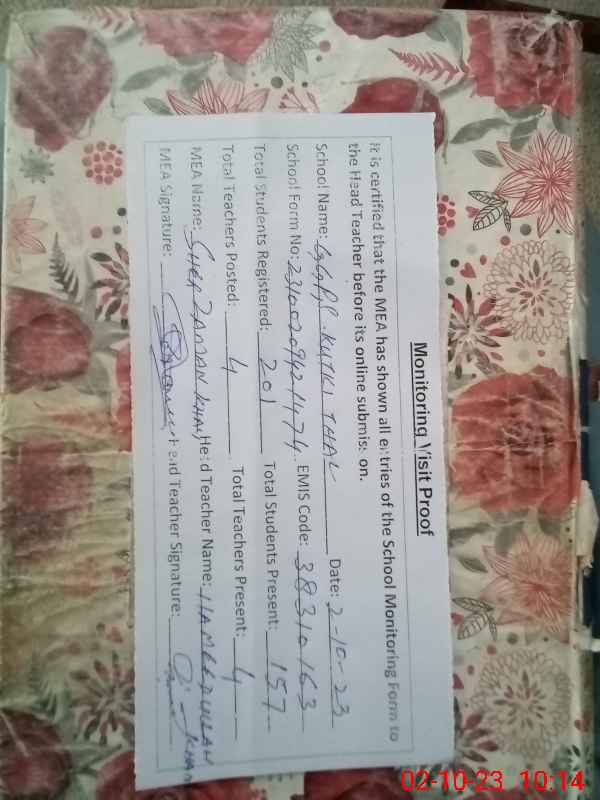 Monitoring Visit Proof
It is certified that the MEA has shown all entries of the School Monitoring Form to
the Head Teacher before its online submission.
School Name: GGPS. KUTKI THAL Date: 2-10-23
School Form No: 23100209421474 EMIS Code: 38310163
Total Students Registered: 201 Total Students Present: 157
Total Teachers Posted: 4 Total Teachers Present: 4
MEA Name: SHER ZAMAN KHAN Head Teacher Name: KHAN
MEA Signature: Head Teacher Signature:
02-10-23 10:14